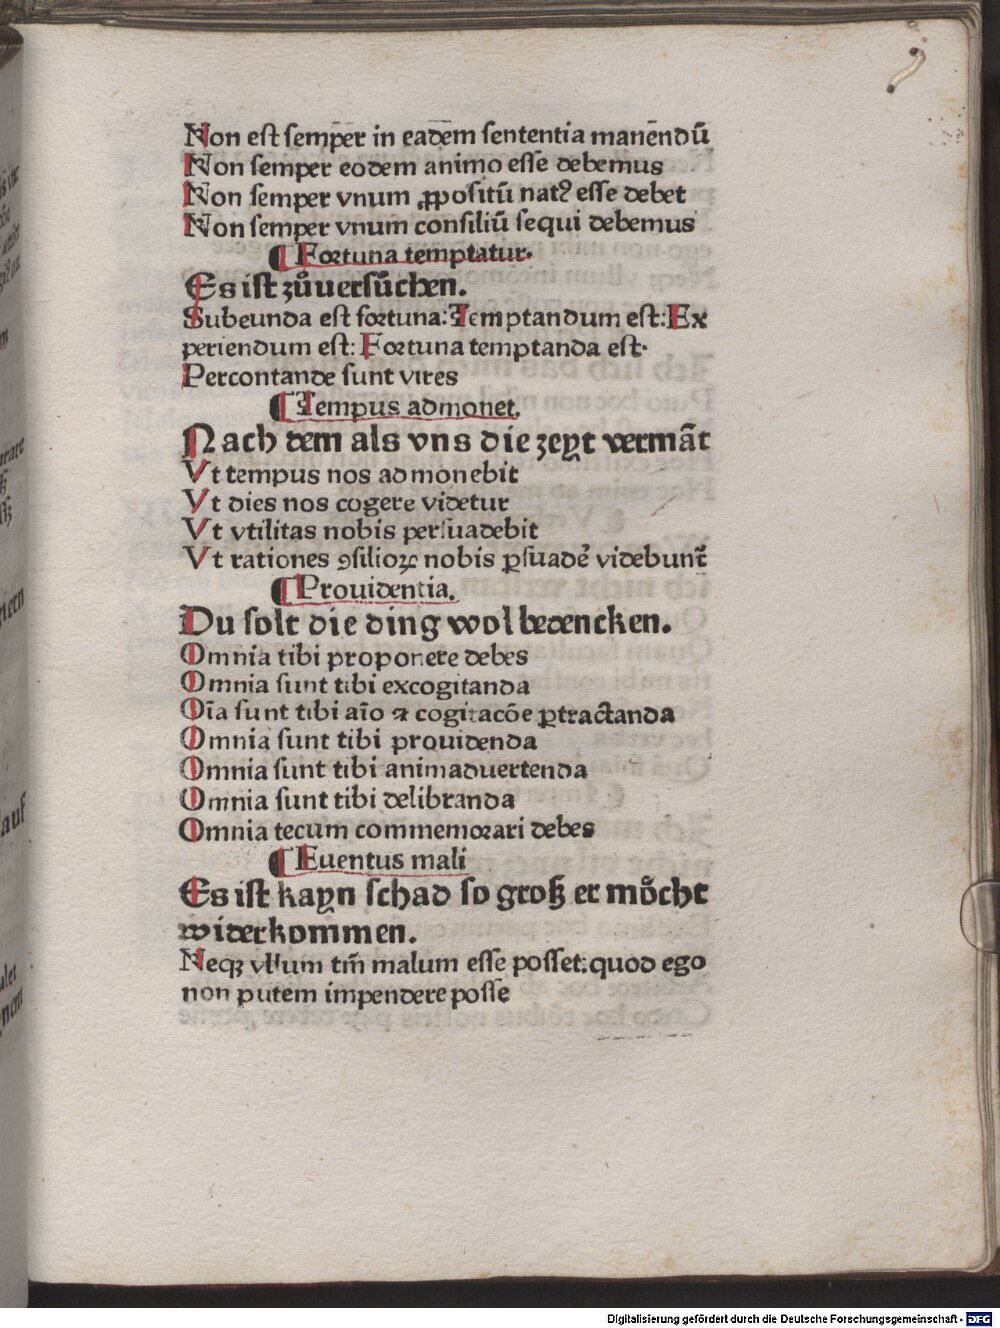 Non est semper in eadem sententia manendū
Non semper eodem animo esse debemus
Non semper vnum ꝓpositū natꝰ esse debet
Non semper vnum consiliū sequi debemus
¶ Fortuna temptatur.
Es ist zůuersůchen.
Subeunda est fortuna: Temptandum est: Ex
periendum est: Fortuna temptanda est.
Percontande sunt vires
¶ Tempus admonet.
Nach dem als vns die zeyt vermāt
Vt tempus nos admonebit
Vt dies nos cogere videtur
Vt vtilitas nobis persuadebit
Vt rationes ꝯsilioꝝ nobis ꝑsuadē videbunt̄
¶ Prouidentia.
Du solt die ding wol bedencken.
Omnia tibi proponere debes
Omnia sunt tibi excogitanda
Oīa sunt tibi aīo ⁊ cogitacōe ꝑtractanda
Omnia sunt tibi prouidenda
Omnia sunt tibi animaduertenda
Omnia sunt tibi delibranda
Omnia tecum commemorari debes
¶ Euentus mali
Es ist kayn schad so groß er moͤcht
widerkommen.
Neqꝫ vllum tm̄ malum esse posset: quod ego
non putem impendere posse
Digitalisierung gefördert durch die Deutsche Forschungsgemeinschaft - DFG